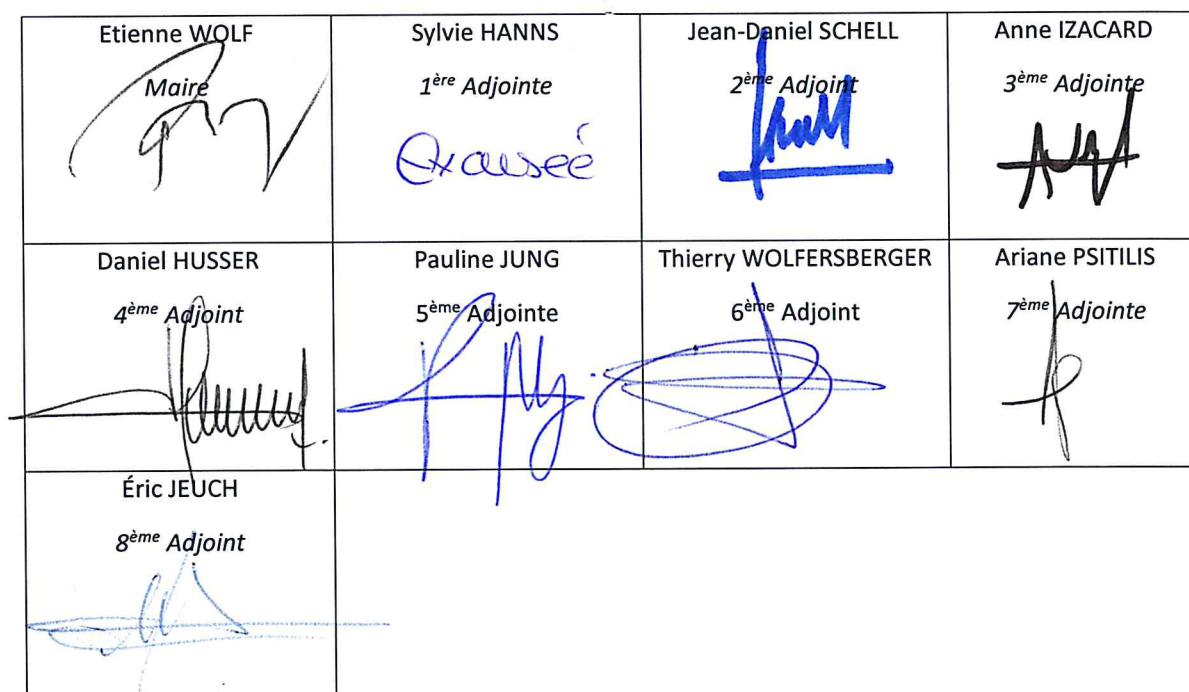 Etienne WOLF
Maire
Sylvie HANNS
1ère Adjointe
Excuseé
Jean-Daniel SCHELL
2ème Adjoint
Anne IZACARD
3ème Adjointe
Daniel HUSSER
4ème Adjoint
Pauline JUNG
5ème Adjointe
Thierry WOLFERSBERGER
6ème Adjoint
Ariane PSITILIS
7ème Adjointe
Éric JEUCH
8ème Adjoint